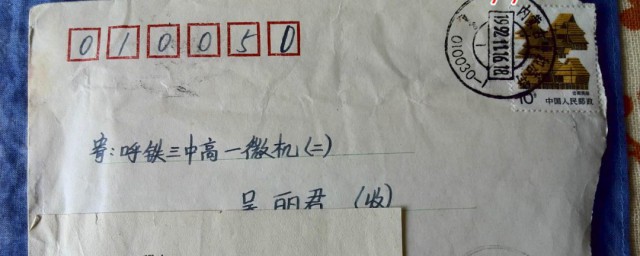 010050
内蒙
1992.11.16.18
010030-1
10分
中国人民邮政
寄:呼铁三中高一微机(二)
吴丽君(收)